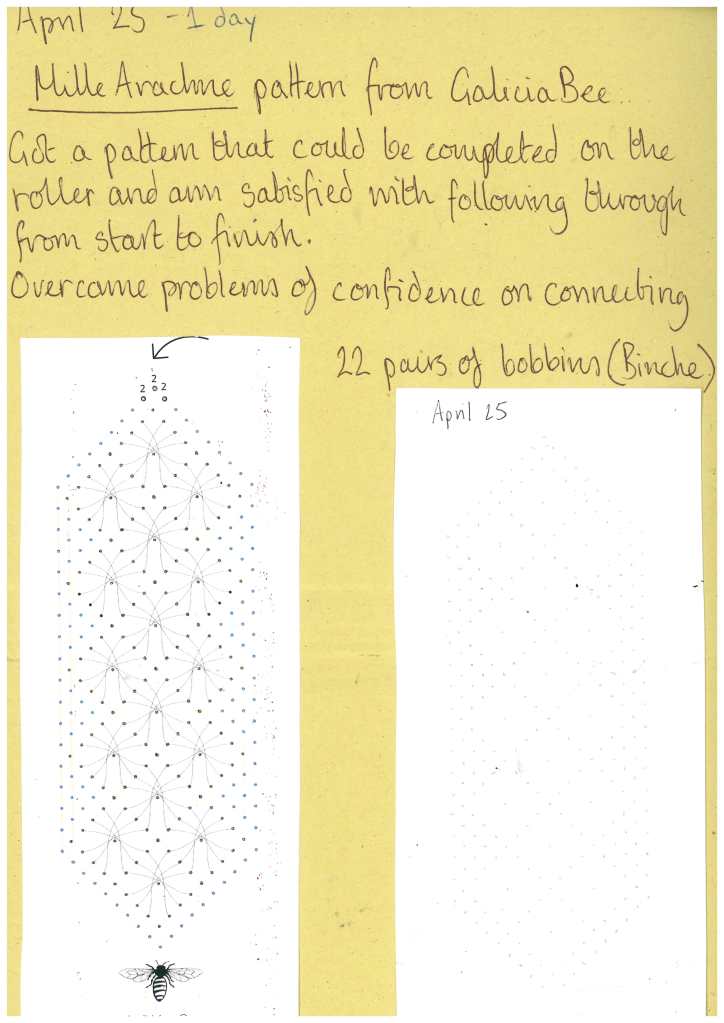 April 25 - 1 day
Mille Arachne pattern from GaliciaBee..
Got a pattern that could be completed on the
roller and am satisfied with following through
from start to finish.
Overcame problems of confidence on connecting
22 pairs of bobbins (Binche)
2
2 2
April 25